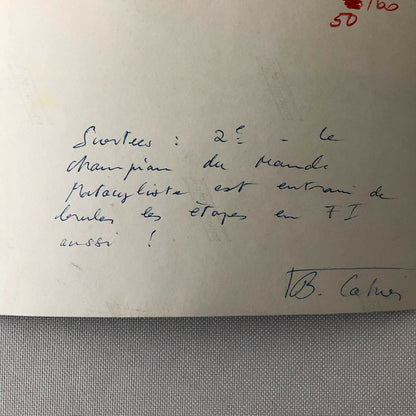 /60
50
Surtees : 2e - le
champion du monde
Motocycliste est entrain de
bruler les étapes en F I
aussi !
B. Cahier